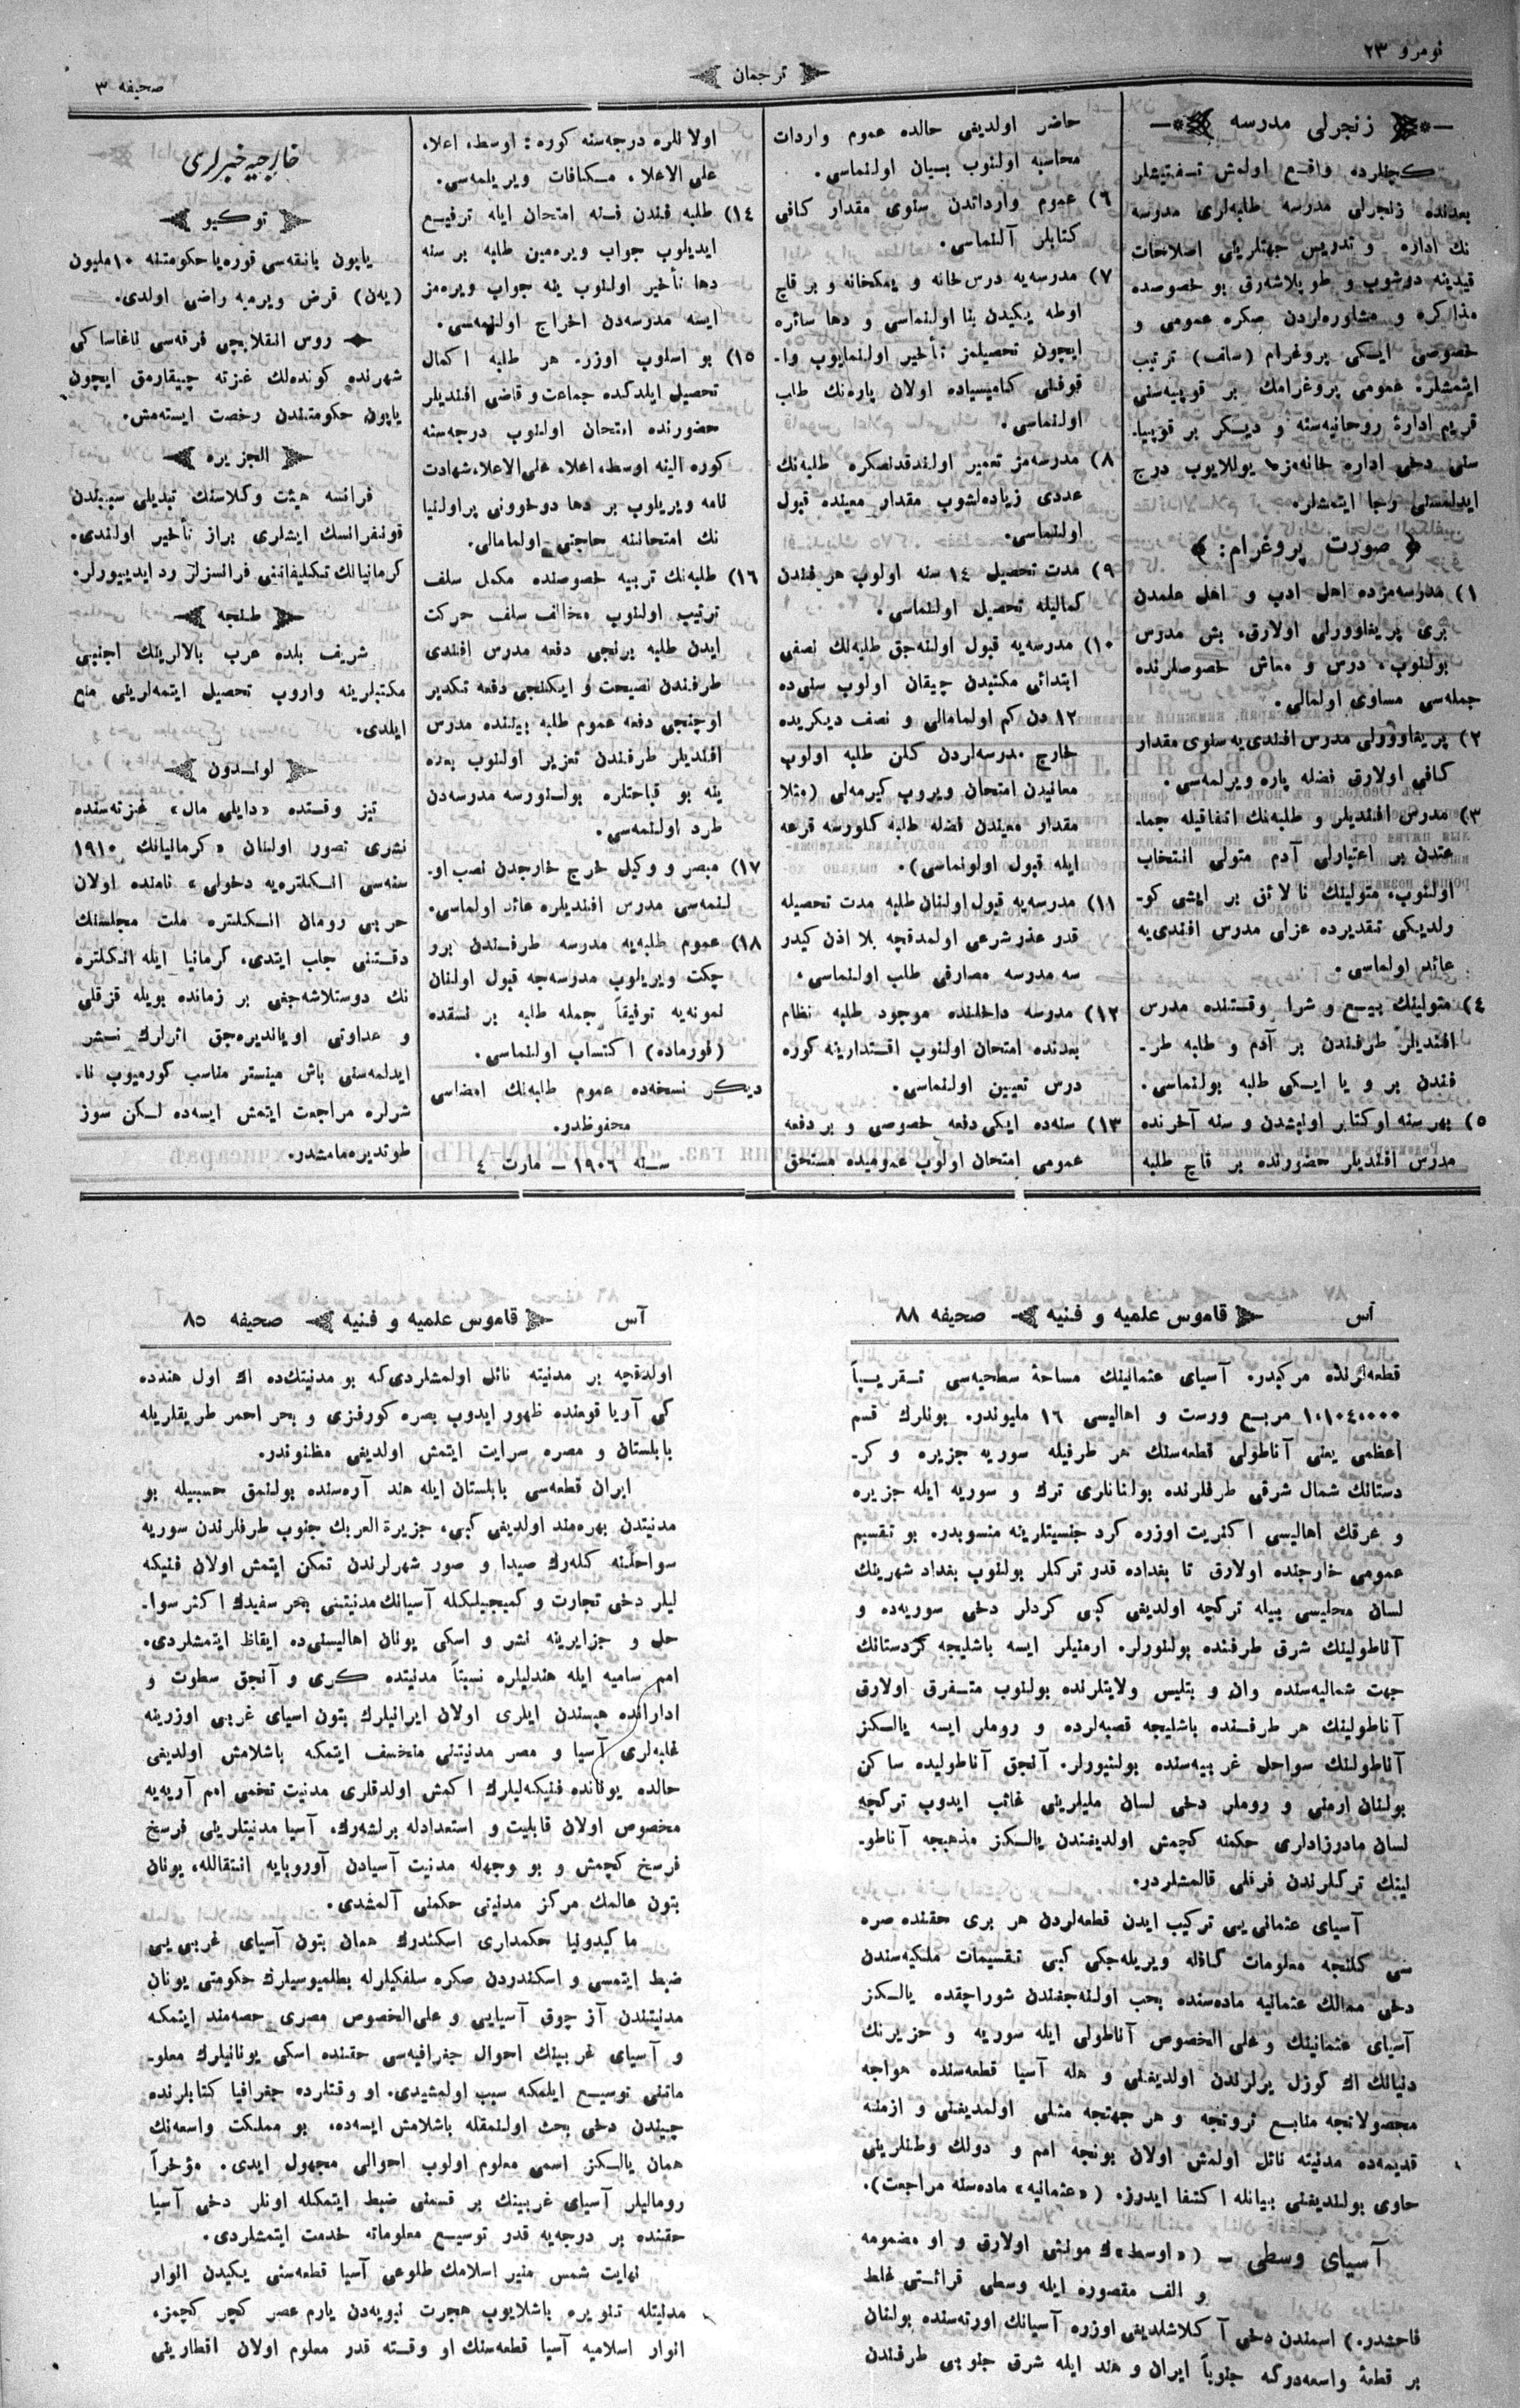 نومرو ٢٣
ترجمان
صحيفه ٣
زنجرلى مدرسه
كچنلرده واقع اولمش تفتيشلر
بعدنده زنجرلى مدرسه طلبه‌لرى مدرسه
نك اداره و تدريس جهتلرينى اصلاحات
قيدينه دوشوب و طوپلاشه‌رق بو خصوصده
مذاكره و مشاوره‌لردن صكره عمومى و
خصوصى ايكى پروغرام (سلف) ترتيب
ايتمشلر: عمومى پروغرامك بر قوپيه‌سنى
قريم ادارۀ روحانيه‌سنه و ديكر بر قوپيا-
سنى دخى اداره خانه‌مزه يوللايوب درج
ايدلمسنى رجا ايتمشلر.
صورت پروغرام:
١) مدرسه‌مزده اهل ادب و اهل علمدن
برى پريغاوورلى اولارق، بش مدرس
بولنوب، درس و معاش خصوصلرنده
جمله‌سى مساوى اولمالى.
٢) پريغاوورلى مدرس افندى‌يه سنوى مقدار
كافى اولارق فضله پاره ويرلمه‌سى.
٣) مدرس افنديلر و طلبه‌نك اتفاقيله جما-
عتدن بر اعتبارلى آدم متولى انتخاب
اولنوب، متولينك نا لائق بر ايشى كو-
رلديكى تقديرده عزلى مدرس افندى‌يه
عائد اولماسى.
٤) متولينك بيع و شرا وقتنده مدرس
افنديلر طرفندن بر آدم و طلبه طر-
فندن بر و يا ايكى طلبه بولنماسى.
٥) بهر سنه او كتابر اوليشدن و سنه آخرنده
مدرس افنديلر حضورنده بر قاچ طلبه
حاضر اولديغى حالده عموم واردات
محاسبه اولنوب بسيان اولنماسى.
٦) عموم وارداتدن سنوى مقدار كافى
كتابلر آلنماسى.
٧) مدرسه‌يه درس خانه و يمكخانه و بر قاچ
اوطه يكيدن بنا اولنماسى و دها سائره
ايچون تحصيلمز تأخير اولنمايوب وا-
قوفلى كاميسياده اولان پاره‌نك طلب
اولنماسى.
٨) مدرسه‌مز تعمير اولندقدنصكره طلبه‌نك
عددى زياده‌لشوب مقدار معينده قبول
اولنماسى.
٩) مدت تحصيل ١٤ سنه اولوب هر فندن
كماليله تحصيل اولنماسى.
١٠) مدرسه‌يه قبول اولنه‌جق طلبه‌نك نصفى
ابتدائى مكتبدن چيقان اولوب سنى‌ده
١٢ دن كم اولمامالى و نصف ديكريده
خارج مدرسه‌لردن كلن طلبه اولوب
معانيدن امتحان ويروب كيرمه‌لى (مثلا
مقدار معيندن فضله طلبه كلورسه قرعه
ايله قبول اولونماسى).
١١) مدرسه‌يه قبول اولنان طلبه مدت تحصيله
قدر عذر شرعى اولمدقچه بلا اذن كيدر
سه مدرسه مصارفى طلب اولنماسى.
١٢) مدرسه داخلنده موجود طلبه نظام
بعدنده امتحان اولنوب اقتدارينه كوره
درس تعيين اولنماسى.
١٣) سنه‌ده ايكى دفعه خصوصى و بر دفعه
عمومى امتحان اولوب عموميده مستحق
اولانلره درجه‌سنه كوره: اوسط، اعلا،
على الاعلا، مكافات ويريلمه‌سى.
١٤) طلبه فندن فنه امتحان ايله ترفيع
ايديلوب جواب ويره‌مين طلبه بر سنه
دها تأخير اولنوب ينه جواب ويره‌مز
ايسه مدرسه‌دن اخراج اولنمه‌سى.
١٥) بو اسلوب اوزره هر طلبه اكمال
تحصيل ايلدكده جماعت و قاضى افنديلر
حضورنده امتحان اولنوب درجه‌سنه
كوره الينه اوسط، اعلا، على الاعلا، شهادت
نامه ويريلوب بر دها دوخوونى پراولنيا
نك امتحاننه حاجتى اولمامالى.
١٦) طلبه‌نك تربيه خصوصنده مكمل سلف
ترتيب اولنوب مخالف سلف حركت
ايدن طلبه برنجى دفعه مدرس افندى
طرفندن نصيحت و ايكنجى دفعه تكدير
اوچنجى دفعه عموم طلبه بيننده مدرس
افنديلر طرفندن تعزير اولنوب بعده
ينه بو قباحتلره بولنورسه مدرسه‌دن
طرد اولنمه‌سى.
١٧) مبصر و وكيل خرج خارجدن نصب او-
لنمه‌سى مدرس افنديلره عائد اولماسى.
١٨) عموم طلبه‌يه مدرسه طرفندن برو
چكت ويريلوب مدرسه‌جه قبول اولنان
نمونه‌يه توفيقاً جمله طلبه بر نسقده
(فورماده) اكتساب اولنماسى.
ديكر نسخه‌ده عموم طلبه‌نك امضاسى
محفوظدر.
سنه ١٩٠٦ – مارت ٤
خارجيه خبرلرى
توكيو
ياپون بانقه‌سى قوره‌يا حكومتنه ١٠ مليون
(يه‌ن) قرض ويرمه راضى اولدى.
روس انقلابچى فرقه‌سى ناغاساكى
شهرنده كونده‌لك غزته چيقارمق ايچون
ياپون حكومتندن رخصت ايسته‌مش.
الجزيره
فرانسه هيئت وكلاسنك تبديلى سببندن
قونفرانسك ايشلرى براز تأخير اولندى.
كرمانيانك تكليفاتنى فرانسزلر رد ايديیورلر.
طنجه
شريف بلده عرب بالالرينك اجنبى
مكتبلرينه واروب تحصيل ايتمه‌لرينى منع
ايلدى.
لوندون
تيز وقتده «دايلى مال» غزته‌سنده
نشرى تصور اولنان «كرمانيانك ١٩١٠
سنه‌سى انكلتره‌يه دخولى» نامنده اولان
حربى رومان انكلتره ملت مجلسنك
دقتنى جلب ايتدى. كرمانيا ايله انكلتره
نك دوستلاشه‌جغى بر زمانده بويله قزقلى
و عداوتى اوياندیره‌جق اثرلرك نشر
ايدلمه‌سنى باش مينستر مناسب كورميوب نا-
شرلره مراجعت ايتمش ايسه‌ده لكن سوز
طوتديره‌مامشدر.
آس قاموس علميه و فنيه صحيفه ٨٨
قطعه‌لرنده مركبدر. آسياى عثمانينك مساحۀ سطحيه‌سى تقريباً
١،١٠٤٠٠٠٠ مربع ورست و اهاليسى ١٦ مليوندر. بونلرك قسم
اعظمى يعنى آناطولى قطعه‌سنك هر طرفيله سوريه جزيره و كر-
دستانك شمال شرقى طرفلرنده بولنانلرى ترك و سوريه ايله جزيره
و عرقك اهاليسى اكثريت اوزره كرد جنسيتلرينه منسوبدر. بو تقسيم
عمومى خارجنده اولارق تا بغداده قدر تركلر بولنوب بغداد شهرينك
لسان محليسى بيله تركچه اولديغى كبى كردلر دخى سوريه‌ده و
آناطولينك شرق طرفنده بولنورلر. ارمنيلر ايسه باشليجه كردستانك
جهت شماليه‌سنده وان و بتليس ولايتلرنده بولنوب متفرق اولارق
آناطولينك هر طرفنده باشليجه قصبه‌لرده و روملر ايسه يالكز
آناطولنك سواحل غربيه‌سنده بولنيوولر. آنجق آناطوليده ساكن
بولنان ارمنى و روملر دخى لسان مليلرينى غائب ايدوب تركچه
لسان مادرزادلرى حكمنه كچمش اولديغندن يالكز مذهبجه آناطو-
لينك تركلرندن فرقلى قالمشلردر.
آسياى عثمانى‌يى تركيب ايدن قطعه‌لردن هر برى حقنده صره
سى كلنجه معلومات كافله ويريله‌جكى كبى تقسيمات ملكيه‌سندن
دخى ممالك عثمانيه ماده‌سنده بحب اولنه‌جغندن شوراچقده يالكز
آسياى عثمانينك و على الخصوص آناطولى ايله سوريه و حزيرنك
دنيانك اك كوزل يرلرندن اولديغنى و هله آسيا قطعه‌سنده هواجه
محصولاتجه منابع ثروتجه و هر جهتجه مثلى اولمديغنى و ازمنۀ
قديمه‌ده مدنيته نائل اولمش اولان بونجه امم و دولك وطنلرينى
حاوى بولنديغنى بيانله اكتفا ايدرز. («عثمانيه» ماده‌سنه مراجعت).
آسياى وسطى – («اوسط»ك مونثى اولارق و او مضمومه
و الف مقصوره ايله وسطى قرائتى غلط
فاحشدر.) اسمندن دخى آكلاشلديغى اوزره آسيانك اورته‌سنده بولنان
بر قطعۀ واسعه‌دركه جنوباً ايران و هند ايله شرق جنوبى طرفندن
آس قاموس علميه و فنيه صحيفه ٨٥
اولدقچه بر مدنيته نائل اولمشلردى‌كه بو مدنيتك‌ده اك اول هندده
كى آريا قومنده ظهور ايدوب بصره كورفزى و بحر احمر طريقلريله
بابلستان و مصره سرايت ايتمش اولديغى مظنوندر.
ايران قطعه‌سى بابلستان ايله هند آره‌سنده بولنمق حسبيله بو
مدنيتدن بهره‌مند اولديغى كبى، جزيرة العربك جنوب طرفلرندن سوريه
سواحلنه كله‌رك صيدا و صور شهرلرندن تمكن ايتمش اولان فنيكه
ليلر دخى تجارت و كميجيلكله آسيانك مدنيتنى بحر سفيدك اكثر سوا-
حل و جزايرينه نشر و اسكى يونان اهاليسنى‌ده ايقاظ ايتمشلردى.
امم ساميه ايله هنديلره نسبتاً مدنيتده كرى و آنجق سطوت و
اداراتده هپسندن ايلرى اولان ايرانيلرك بتون اسياى غربى اوزرينه
غلبه‌لرى آسيا و مصر مدنيتنى منخسف ايتمكه باشلامش اولديغى
حالده يونانده فنيكه‌ليلرك اكمش اولدقلرى مدنيت تخمى امم آريه‌يه
مخصوص اولان قابليت و استعدادله برلشه‌رك، آسيا مدنيتلرينى فرسخ
فرسخ كچمش و بو وجهله مدنيت آسيادن آوروپايه انتقالله، يونان
بتون عالمك مركز مدنيتى حكمنى آلمشدى.
ماكيدونيا حكمدارى اسكندرك همان بتون آسياى غربى‌يى
ضبط ايتمسى و اسكندردن صكره سلفكيلرله بطلميوسيلرك حكومتى يونان
مدنيتندن آز چوق آسيايى و على‌الخصوص مصرى حصه‌مند ايتمكه
و آسياى غربينك احوال جغرافيه‌سى حقنده اسكى يونانيلرك معلو-
ماتنى توسيع ايلمكه سبب اولمشيدى. او وقتلرده جغرافيا كتابلرنده
چيندن دخى بحث اولنمقله باشلامش ايسه‌ده، بو مملكت واسعه‌نك
همان يالكز اسمى معلوم اولوب احوالى مجهول ايدى. مؤخراً
روماليلر آسياى غربينك بر قسمنى ضبط ايتمكله اونلر دخى آسيا
حقنده بر درجه‌يه قدر توسيع معلوماته خدمت ايتمشلردى.
نهايت شمس منير اسلامك طلوعى آسيا قطعه‌سنى يكيدن انوار
مدنيتله تنويره باشلايوب هجرت نبويه‌دن يارم عصر كچر كچمز،
انوار اسلاميه آسيا قطعه‌سنك او وقته قدر معلوم اولان اقطارينى